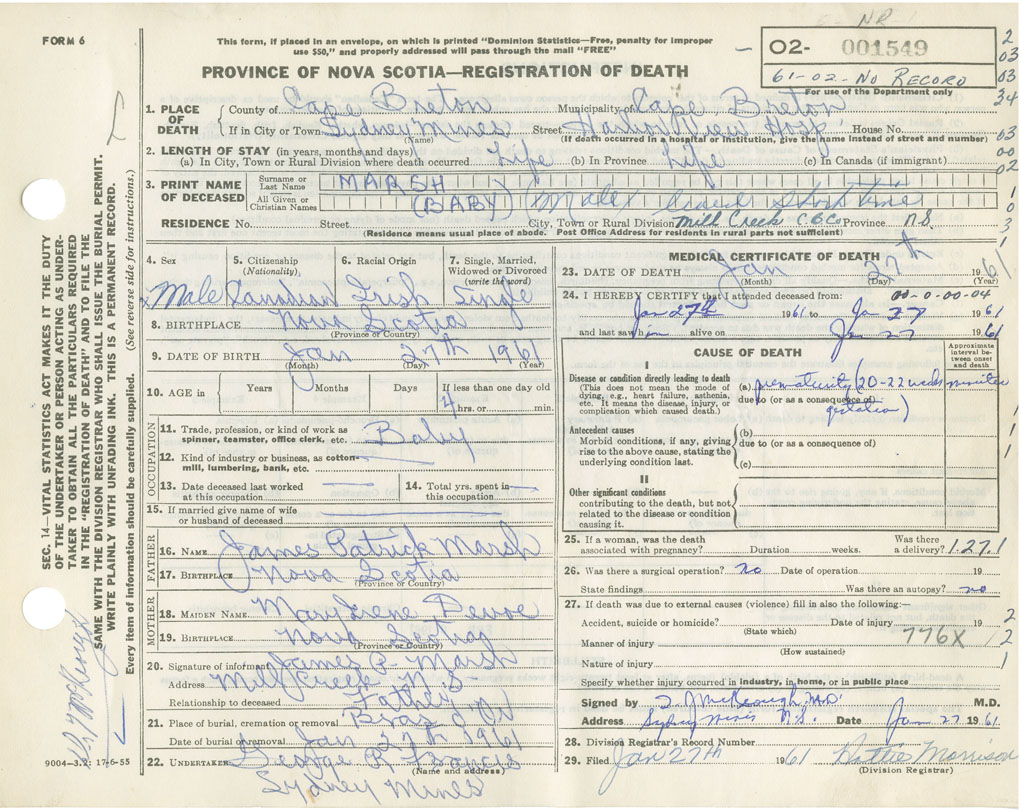 NR
FORM 6
This form, if placed in an envelope, on which is printed "Dominion Statistics—Free, penalty for improper
use $50," and properly addressed will pass through the mail "FREE"
O2- 001549
61-02-No Record
For use of the Department only
2
03
03
34
63
00
02
1
0
3
1
PROVINCE OF NOVA SCOTIA—REGISTRATION OF DEATH
1. PLACE OF DEATH
County of Cape Breton Municipality of Cape Breton
If in City or Town Sydney Mines Street Harbor View Hosp. House No.
(Name) (If death occurred in a hospital or institution, give the name instead of street and number)
2. LENGTH OF STAY (in years, months and days)
(a) In City, Town or Rural Division where death occurred Life (b) In Province Life (c) In Canada (if immigrant)
3. PRINT NAME OF DECEASED
Surname or Last Name MARSH
All Given or Christian Names (BABY) (Male lived short time
RESIDENCE No. Street City, Town or Rural Division Mill Creek C.B.Co Province N.S.
(Residence means usual place of abode. Post Office Address for residents in rural parts not sufficient)
4. Sex Male
5. Citizenship (Nationality) Canadian
6. Racial Origin Irish
7. Single, Married, Widowed or Divorced (write the word) Single
8. BIRTHPLACE Nova Scotia
(Province or Country)
9. DATE OF BIRTH Jan 27th 1961
(Month) (Day) (Year)
10. AGE in Years Months Days If less than one day old
4 hrs. or min.
OCCUPATION
11. Trade, profession, or kind of work as spinner, teamster, office clerk, etc. Baby
12. Kind of industry or business, as cotton-mill, lumbering, bank, etc.
13. Date deceased last worked at this occupation
14. Total yrs. spent in this occupation
15. If married give name of wife or husband of deceased
FATHER
16. NAME James Patrick Marsh
17. BIRTHPLACE Nova Scotia
(Province or Country)
MOTHER
18. MAIDEN NAME Mary Irene Devoe
19. BIRTHPLACE Nova Scotia
(Province or Country)
20. Signature of informant James P. Marsh
Address Mill Creek N.S.
Relationship to deceased Father
21. Place of burial, cremation or removal Bras d'Or
Date of burial or removal Jan 27th 1961
22. UNDERTAKER George R Francis
(Name and address)
Sydney Mines
MEDICAL CERTIFICATE OF DEATH
23. DATE OF DEATH Jan 27th 1961
(Month) (Day) (Year)
24. I HEREBY CERTIFY that I attended deceased from: 00-0.00-04
Jan 27th 1961 to Ja 27 1961
and last saw him alive on Ja 27 1961
CAUSE OF DEATH
Approximate interval between onset and death
I
Disease or condition directly leading to death
(This does not mean the mode of dying, e.g., heart failure, asthenia, etc. It means the disease, injury, or complication which caused death.)
(a) prematurity (20-22 weeks minutes
due to (or as a consequence of)
gestation)
Antecedent causes
Morbid conditions, if any, giving rise to the above cause, stating the underlying condition last.
(b)
due to (or as a consequence of)
(c)
1
1
1
II
Other significant conditions
contributing to the death, but not related to the disease or condition causing it.
25. If a woman, was the death associated with pregnancy? Duration weeks. Was there a delivery? 1.27.1
26. Was there a surgical operation? no Date of operation 19
State findings Was there an autopsy? no
27. If death was due to external causes (violence) fill in also the following:—
Accident, suicide or homicide? Date of injury 19 2
(State which)
Manner of injury 776X 2
(How sustained)
Nature of injury 1
Specify whether injury occurred in industry, in home, or in public place
Signed by J. McKeough M.D. M.D.
Address Sydney Mines N.S. Date Jan 27 1961
28. Division Registrar's Record Number
29. Filed Jan 27th 1961 Hattie Morrison
(Division Registrar)
SEC. 14—VITAL STATISTICS ACT MAKES IT THE DUTY
OF THE UNDERTAKER OR PERSON ACTING AS UNDER-
TAKER TO OBTAIN ALL THE PARTICULARS REQUIRED
IN THE "REGISTRATION OF DEATH" AND TO FILE THE
SAME WITH THE DIVISION REGISTRAR WHO SHALL ISSUE THE BURIAL PERMIT.
WRITE PLAINLY WITH UNFADING INK. THIS IS A PERMANENT RECORD.
Every item of information should be carefully supplied. (See reverse side for instructions.)
9004-3.2: 17-6-55